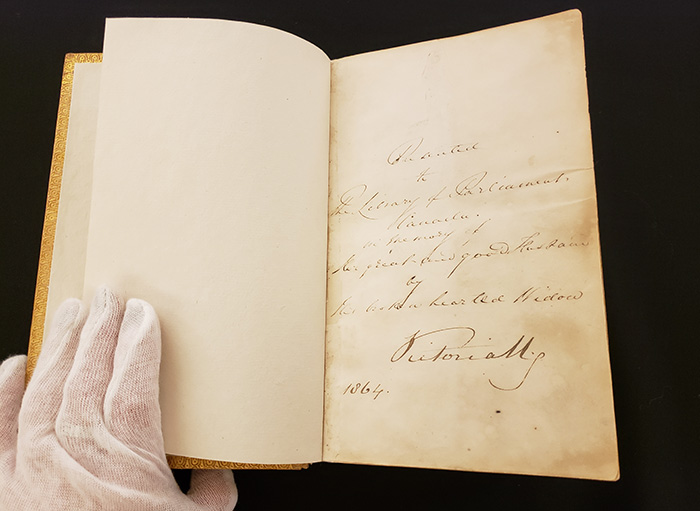 Presented
to
The Library of Parliament,
Canada.
in memory of
Her great and good Husband
by
Her broken hearted Widow
Victoria R.
1864.